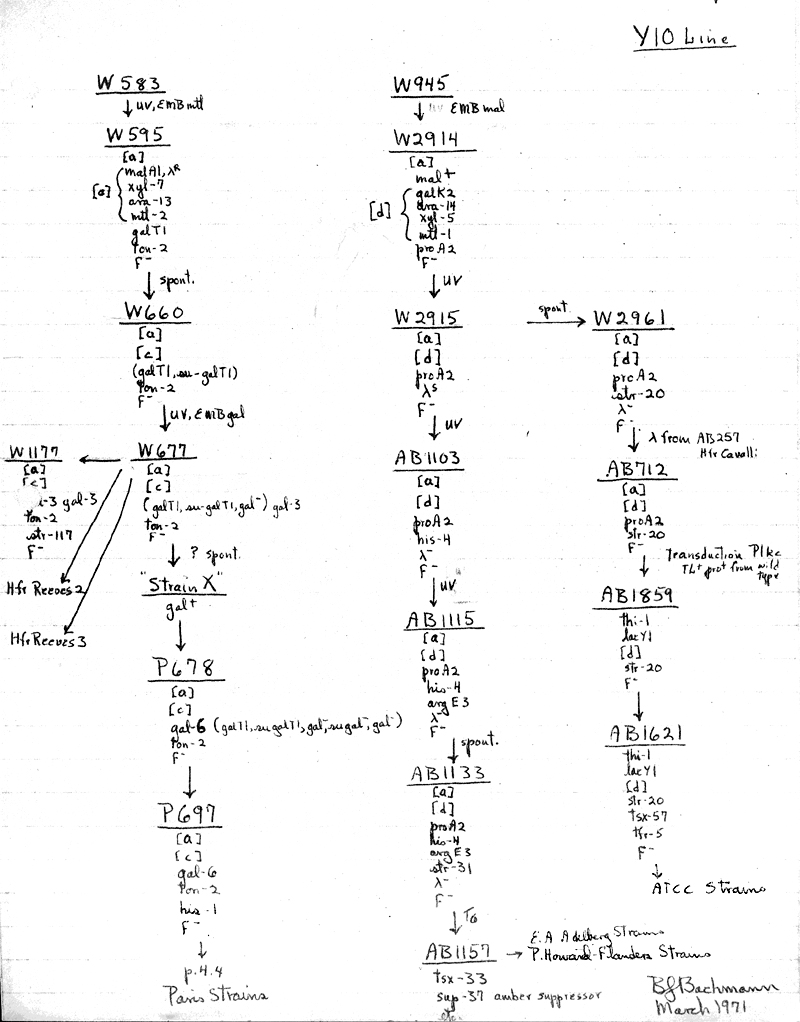 Y10 Line
W583
↓ UV, EMB mtl
W595
[a]
[a] { malA1, λR
xyl-7
ara-13
mtl-2
galT1
ton-2
F-
↓ spont.
W660
[a]
[c]
(galT1, su-galT1)
ton-2
F-
↓ UV, EMB gal
W677
[a]
[c]
(galT1, su-galT1, gal-) gal-3
ton-2
F-
W1177
[a]
[c]
gal-3
ton-2
str-117
F-
Hfr Reeves 2
Hfr Reeves 3
↓ ? spont.
"Strain X"
gal+
↓
P678
[a]
[c]
gal-6 (galT1, su galT1, gal-, su gal-, gal-)
ton-2
F-
↓
P697
[a]
[c]
gal-6
ton-2
his-1
F-
↓
p.4.4
Paris Strains
W945
↓ UV EMB mal
W2914
[a]
mal+
[d] { galK2
ara-14
xyl-5
mtl-1
proA2
F-
↓ UV
W2915
[a]
[d]
proA2
λs
F-
↓ UV
AB1103
[a]
[d]
proA2
his-4
λ-
F-
↓ UV
AB1115
[a]
[d]
proA2
his-4
argE3
λ-
F-
↓ spont.
AB1133
[a]
[d]
proA2
his-4
argE3
str-31
λ-
F-
↓ T6
AB1157 → E.A Adelberg Strains
P. Howard-Flanders Strains
tsx-33
sup-37 amber suppressor
etc.
spont →
W2961
[a]
[d]
proA2
str-20
λ-
F-
↓ λ from AB257
Hfr Cavalli
AB712
[a]
[d]
proA2
str-20
F-
↓ Transduction P1kc
TL+ pro+ from wild
type
AB1859
thi-1
lacY1
[d]
str-20
F-
↓
AB1621
thi-1
lacY1
[d]
str-20
tsx-57
tfr-5
F-
↓
ATCC Strains
BJBachmann
March 1971